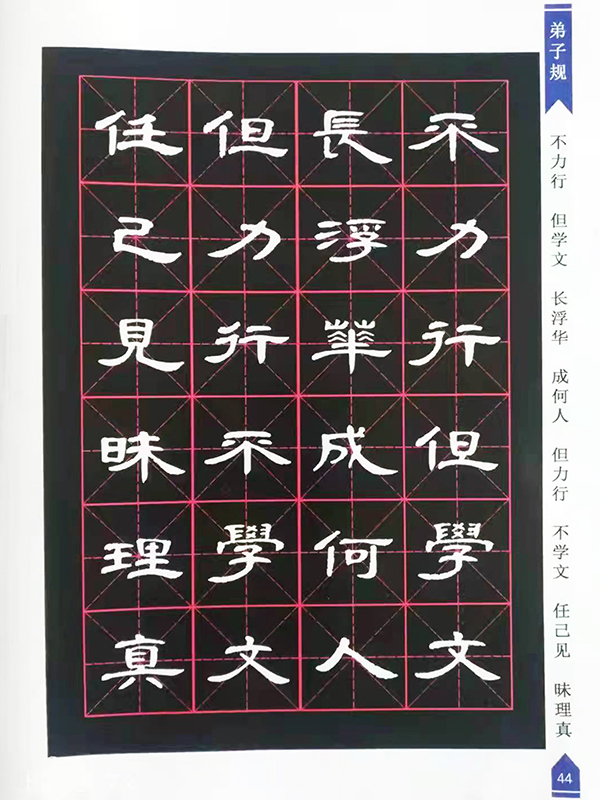 弟子规
不力行 但学文 长浮华 成何人 但力行 不学文 任己见 昧理真
不力行但學文
長浮華成何人
但力行不學文
任己見昧理真
44